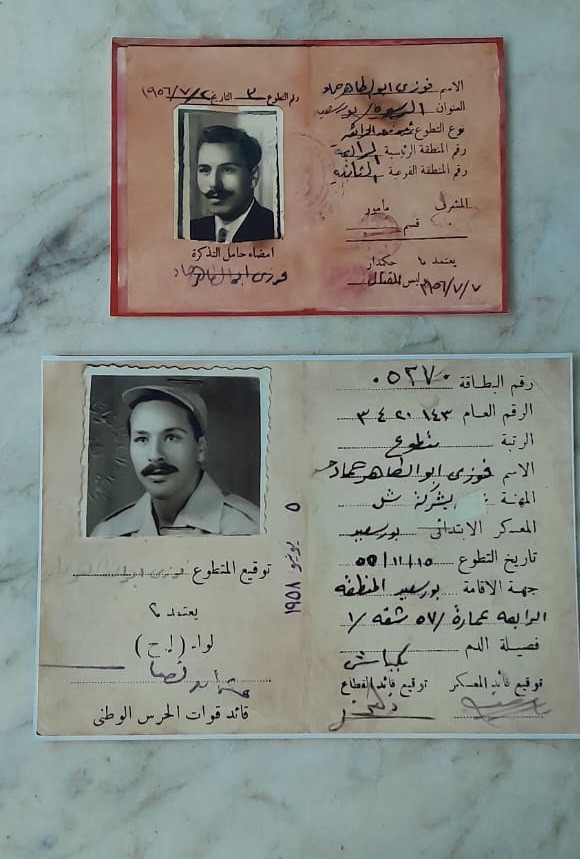 الاسم فوزى ابو الطاهر حماد
العنوان الرسوه / بورسعيد
نوع التطوع
رقم المنطقة الرئيسية الرابعه
رقم المنطقة الفرعية الثانيه
المشرف مأمور
قسم
يعتمد ،، حكمدار
بوليس القنال ١٩٥٦/٧/٧
رقم التطوع ٣ التاريخ ١٩٥٦/٧/٢
امضاء حامل التذكرة
فوزى ابو الطاهر حماد
رقم البطاقة ٠٥٢٧٠
الرقم العام ١٤٣ ٣٤٢٠
الرتبة متطوع
الاسم فوزى ابو الطاهر حماد
المهنة بشركة شل
المعسكر الابتدائى بورسعيد
تاريخ التطوع ٥٥/١١/١٥
جهة الاقامة بورسعيد المنطقه
الرابعه عمارة / ٥٧ شقه / ١
فصيلة الدم
بكباشى
توقيع قائد المعسكر توقيع قائد القطاع
٥ يونيو ١٩٥٨
توقيع المتطوع فوزى ابو الطاهر
يعتمد ،،
لواء (ا.ح)
قائد قوات الحرس الوطنى